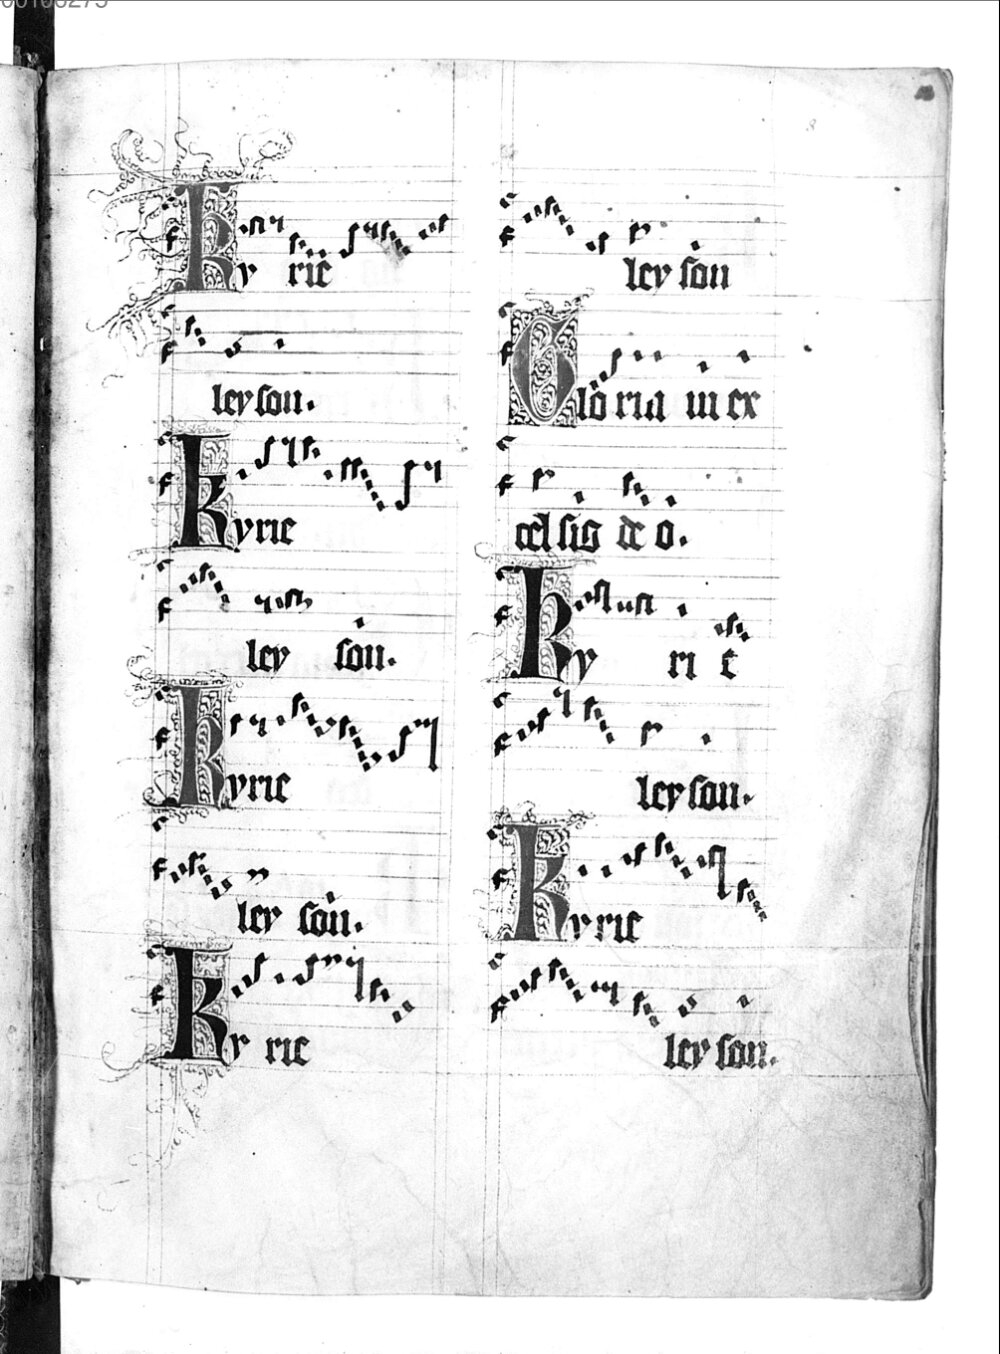 Ky rie
leyson.
Kyrie
ley son.
Kyrie
ley son.
Ky rie
ley son
Glo ria in ex
cel sis de o.
Ky ri e
ley son.
Kyrie
ley son.